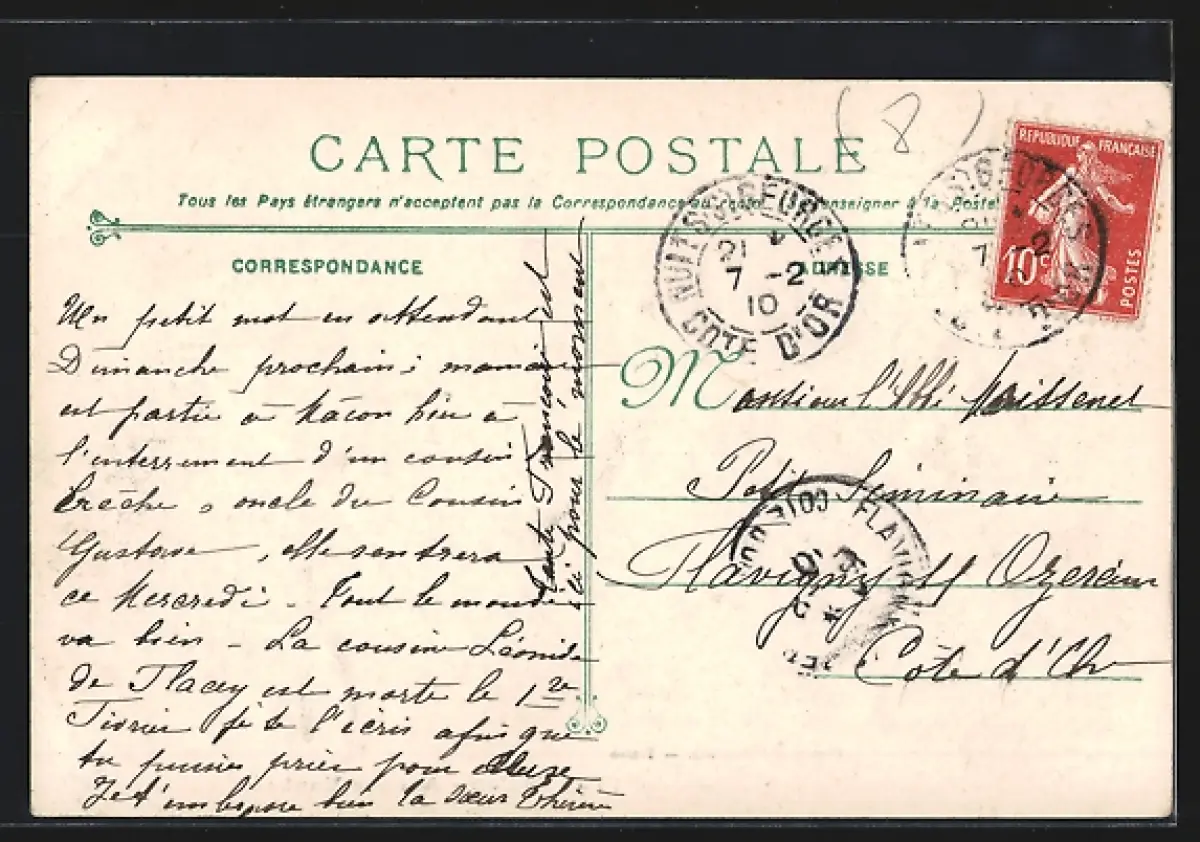 (8)
CARTE POSTALE
Tous les Pays étrangers n'acceptent pas la Correspondance au recto enseigner à la Poste
REPUBLIQUE FRANÇAISE
10c
POSTES
NUITS-ST-GEORGES
21 *
7 -2
10
COTE D'OR
CORRESPONDANCE
ADRESSE
Un petit mot en attendant
Dimanche prochain; maman
est partie à Mâcon hier à
l'enterrement d'un cousin
Crèche, oncle du Cousin
Gustave, elle rentrera
ce Mercredi - Tout le monde
va bien - La cousine Léonide
de Flacey est morte le 1er
Février je te l'écris afin que
tu puisses prier pour
Je t'embrasse bien ta sœur Thérèse
Tante Francine est
ici pour le moment
Monsieur l'Abbé Maissenet
Petit Séminaire
Flavigny s/ Ozerain
Côte d'Or
FLAVIGNY
COTE D'OR